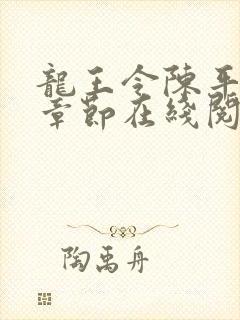 龍王令陳平
章節在綫閱
陶禹舟